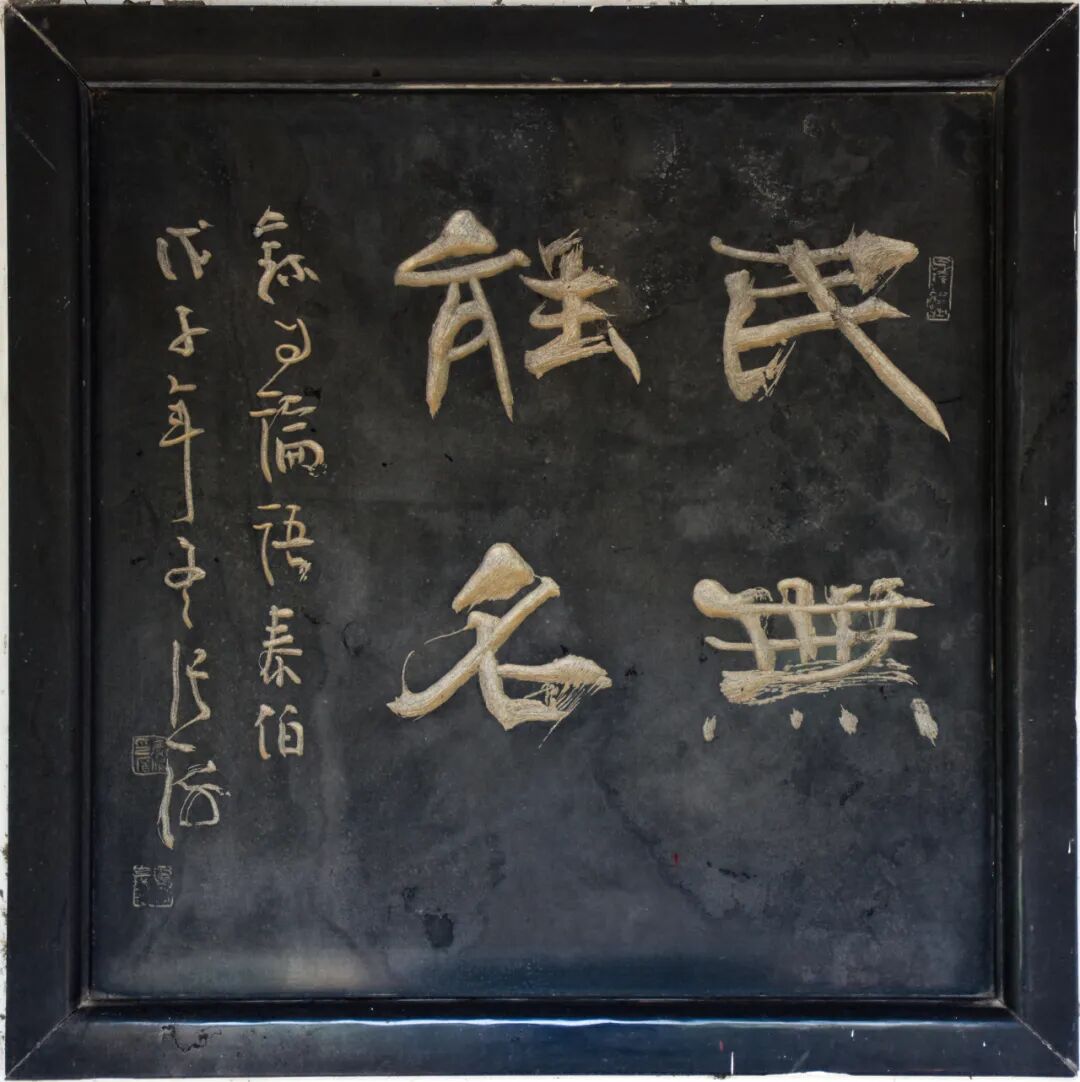 民無
能名
錄自論語泰伯
戊子年張海